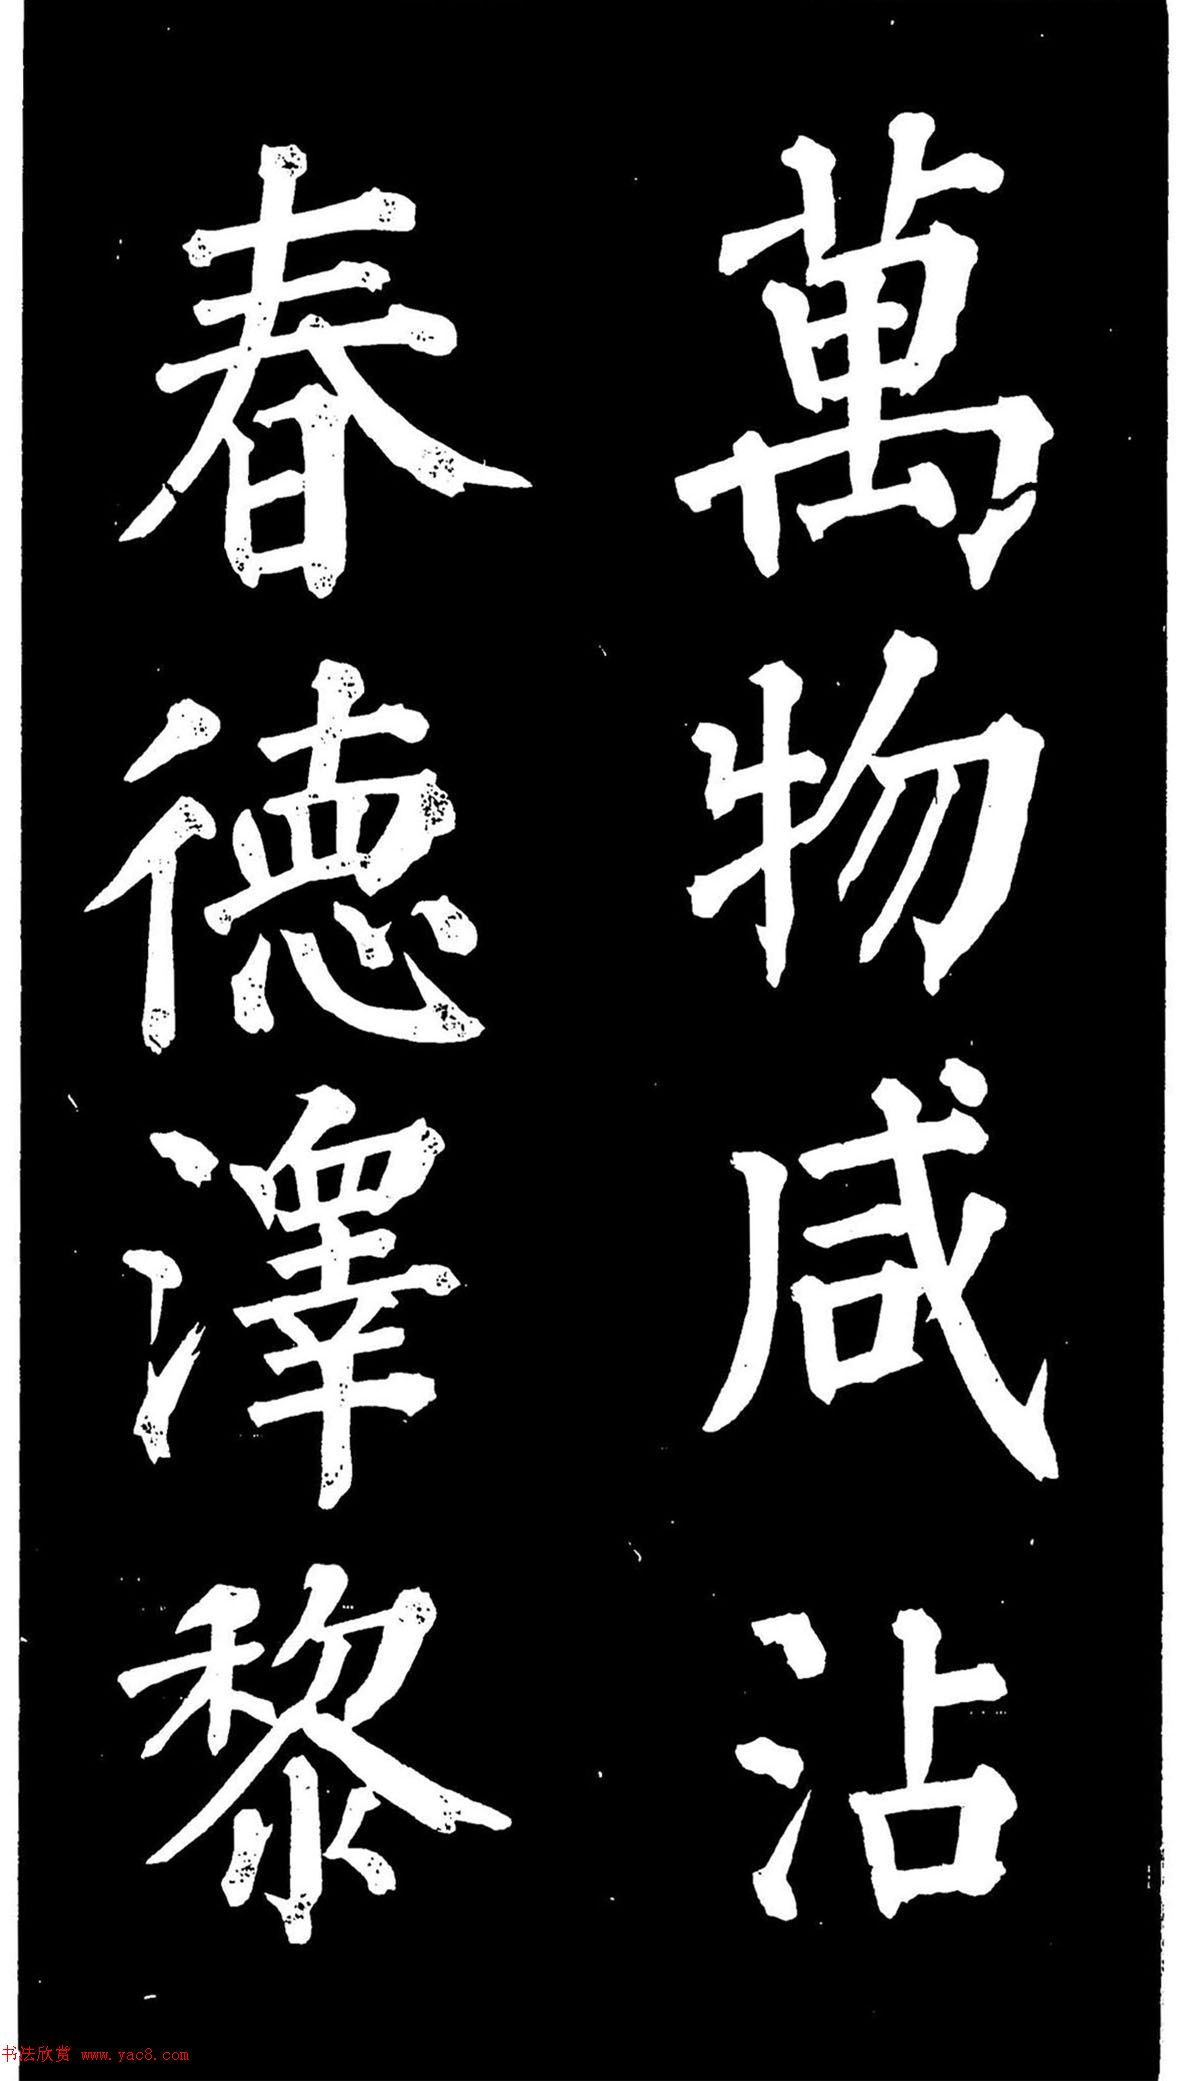 萬物咸沾
春德澤黎
书法欣赏 www.yac8.com